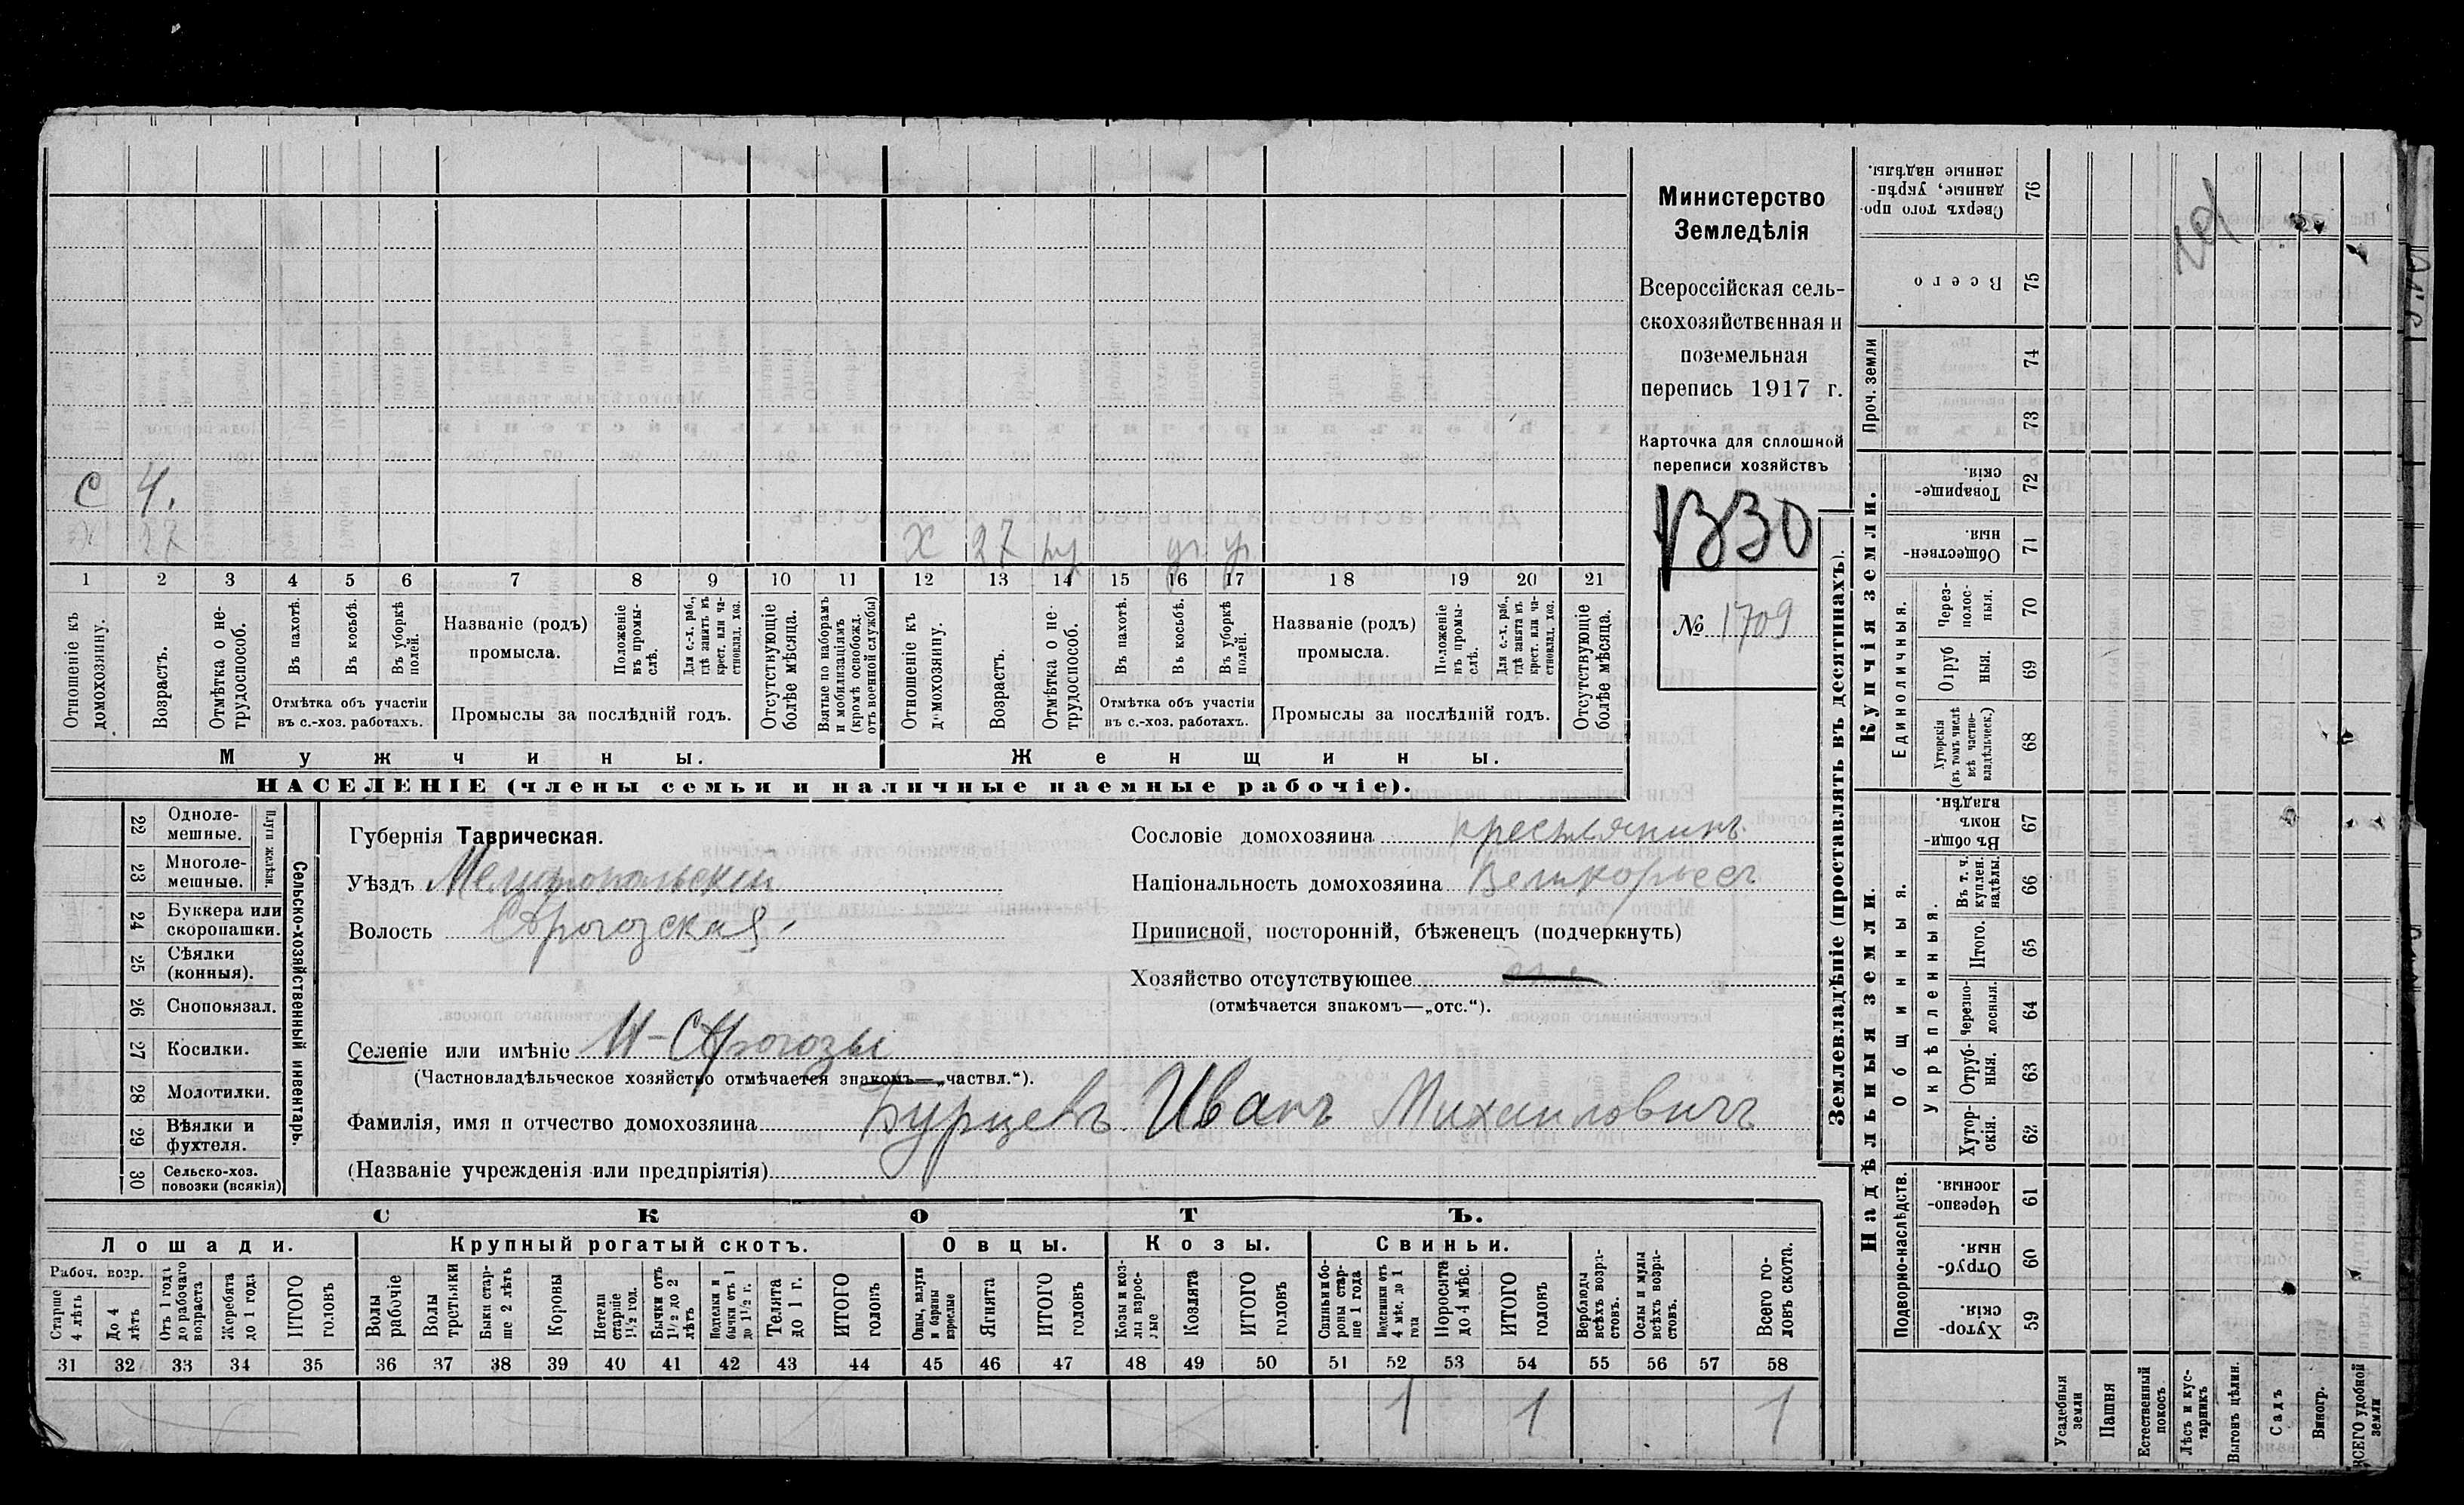 Министерство
Земледѣлія
Всероссійская сель-
скохозяйственная и
поземельная
перепись 1917 г.
Карточка для сплошной
переписи хозяйствъ
1330
№ 1709
с 4.
х 27
х 27
1 2 3 4 5 6 7 8 9 10 11 12 13 14 15 16 17 18 19 20 21
Отношеніе къ домохозяину.
Возрастъ.
Отмѣтка о не-трудоспособ.
Въ пахотѣ.
Въ косьбѣ.
Въ уборкѣ полей.
Отмѣтка объ участіи
въ с.-хоз. работахъ.
Названіе (родъ)
промысла.
Положеніе въ промы-слѣ.
Для с.-х. раб., гдѣ занятъ въ крест. или ча-стновлад. хоз.
Промыслы за послѣдній годъ.
Отсутствующіе болѣе мѣсяца.
Взятые по наборамъ и мобилизаціямъ (кромѣ освобожд. отъ военной службы)
Отношеніе къ домохозяину.
Возрастъ.
Отмѣтка о не-трудоспособ.
Въ пахотѣ.
Въ косьбѣ.
Въ уборкѣ полей.
Отмѣтка объ участіи
въ с.-хоз. работахъ.
Названіе (родъ)
промысла.
Положеніе въ промы-слѣ.
Для с.-х. раб., гдѣ занята въ крест. или ча-стновлад. хоз.
Промыслы за послѣдній годъ.
Отсутствующіе болѣе мѣсяца.
Мужчины.
Женщины.
НАСЕЛЕНІЕ (члены семьи и наличные наемные рабочіе).
Сельско-хозяйственный инвентарь.
Плуги желѣзн.
22 Одноле-мешные.
23 Многоле-мешные.
24 Буккера или скоропашки.
25 Сѣялки (конныя).
26 Сноповязал.
27 Косилки.
28 Молотилки.
29 Вѣялки и фухтеля.
30 Сельско-хоз. повозки (всякія)
Губернія Таврическая.
Уѣздъ Мелитопольскій
Волость Сѣрогозская
Селеніе или имѣніе Н-Сѣрогозы
(Частновладѣльческое хозяйство отмѣчается знакомъ—„частвл.“).
Сословіе домохозяина крестьянинъ
Національность домохозяина Великороссъ
Приписной, посторонній, бѣженецъ (подчеркнуть)
Хозяйство отсутствующее
(отмѣчается знакомъ—„отс.“).
Фамилія, имя и отчество домохозяина Бурцевъ Иванъ Михайловичъ
(Названіе учрежденія или предпріятія)
СКОТЪ.
Лошади.
Крупный рогатый скотъ.
Овцы.
Козы.
Свиньи.
Рабоч. возр.
Старше 4 лѣтъ
До 4 лѣтъ
Отъ 1 года до рабочаго возраста
Жеребята до 1 года
ИТОГО головъ
Волы рабочіе
Волы третьяки
Быки стар-ше 2 лѣтъ
Коровы
Нетели старше 1½ год.
Бычки отъ 1½ до 2 лѣтъ
Телки и бычки отъ 1 до 1½ г.
Телята до 1 г.
ИТОГО головъ
Овцы, валухи и бараны взрослые
Ягнята
ИТОГО головъ
Козы и коз-лы взрос-лые
Козлята
ИТОГО головъ
Свиньи и бо-ровы стар-ше 1 года
Подсвинки отъ 4 мѣс. до 1 года
Поросята до 4 мѣс.
ИТОГО головъ
Верблюды всѣхъ возра-стовъ.
Ослы и мулы всѣхъ возра-стовъ.
Всего го-ловъ скота.
31 32 33 34 35 36 37 38 39 40 41 42 43 44 45 46 47 48 49 50 51 52 53 54 55 56 57 58
1 1 1
Землевладѣніе (проставлять въ десятинахъ).
Надѣльныя земли.
Купчія земли.
Подворно-наслѣдств.
Общинныя.
Укрѣпленныя.
Единоличныя.
Проч. земли
Сверхъ того про-данные, укрѣп-ленные надѣлы. 76
Всего 75
74
73
Товарище-скія. 72
Обществен-ныя. 71
Через-полос-ныя. 70
Отруб-ныя. 69
Хуторскія (въ томъ числѣ всѣ частно-владѣльческ.) 68
Въ общин-номъ владѣн. 67
Въ т. ч. куплен. надѣлы. 66
Итого. 65
Черезпо-лосныя. 64
Отруб-ныя. 63
Хутор-скія. 62
Черезпо-лосныя. 61
Отруб-ныя. 60
Хутор-скія. 59
Усадебныя земли
Пашня
Естественный покосъ
Лѣсъ и кус-тарникъ
Выгонъ цѣлин.
Садъ
Виногр.
ВСЕГО удобной земли